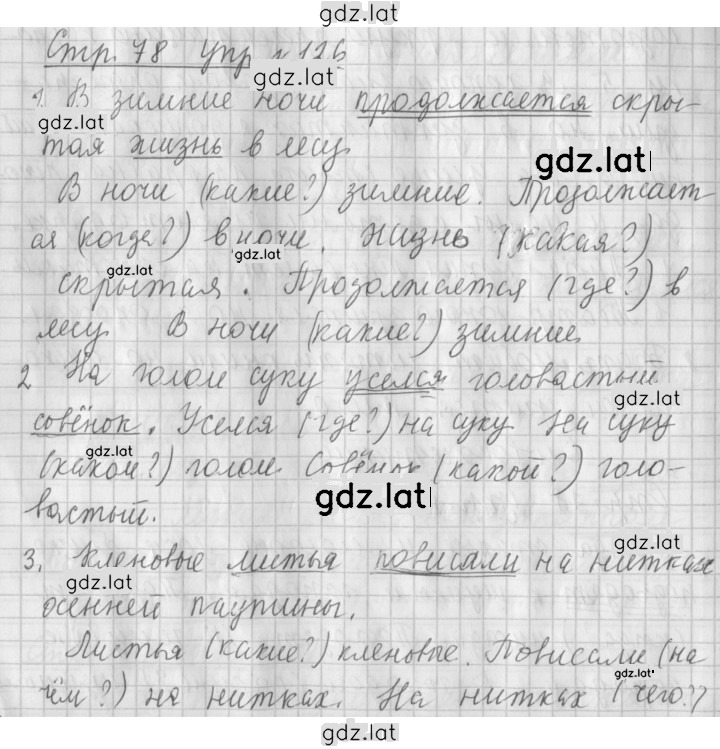 gdz.lat
Стр. 78 упр. № 126
gdz.lat
1. В зимние ночи продолжается скры-
gdz.lat
тая жизнь в лесу.
gdz.lat
В ночи (какие?) зимние. Продолжает-
ся (когда?) в ночи. Жизнь (какая?)
gdz.lat
gdz.lat
скрытая. Продолжается (где?) в
лесу. В ночи (какие?) зимние.
2 На голом суку уселся головастый
gdz.lat
совёнок. Уселся (где?) на суку. На суку
gdz.lat
(каком?) голом. Совёнок (какой?) голо-
gdz.lat
вастый.
gdz.lat
3. Кленовые листья повисали на нитках
gdz.lat
осенней паутины.
Листья (какие?) кленовые. Повисали (на
gdz.lat
чём?) на нитках. На нитках (чего?)
gdz.lat